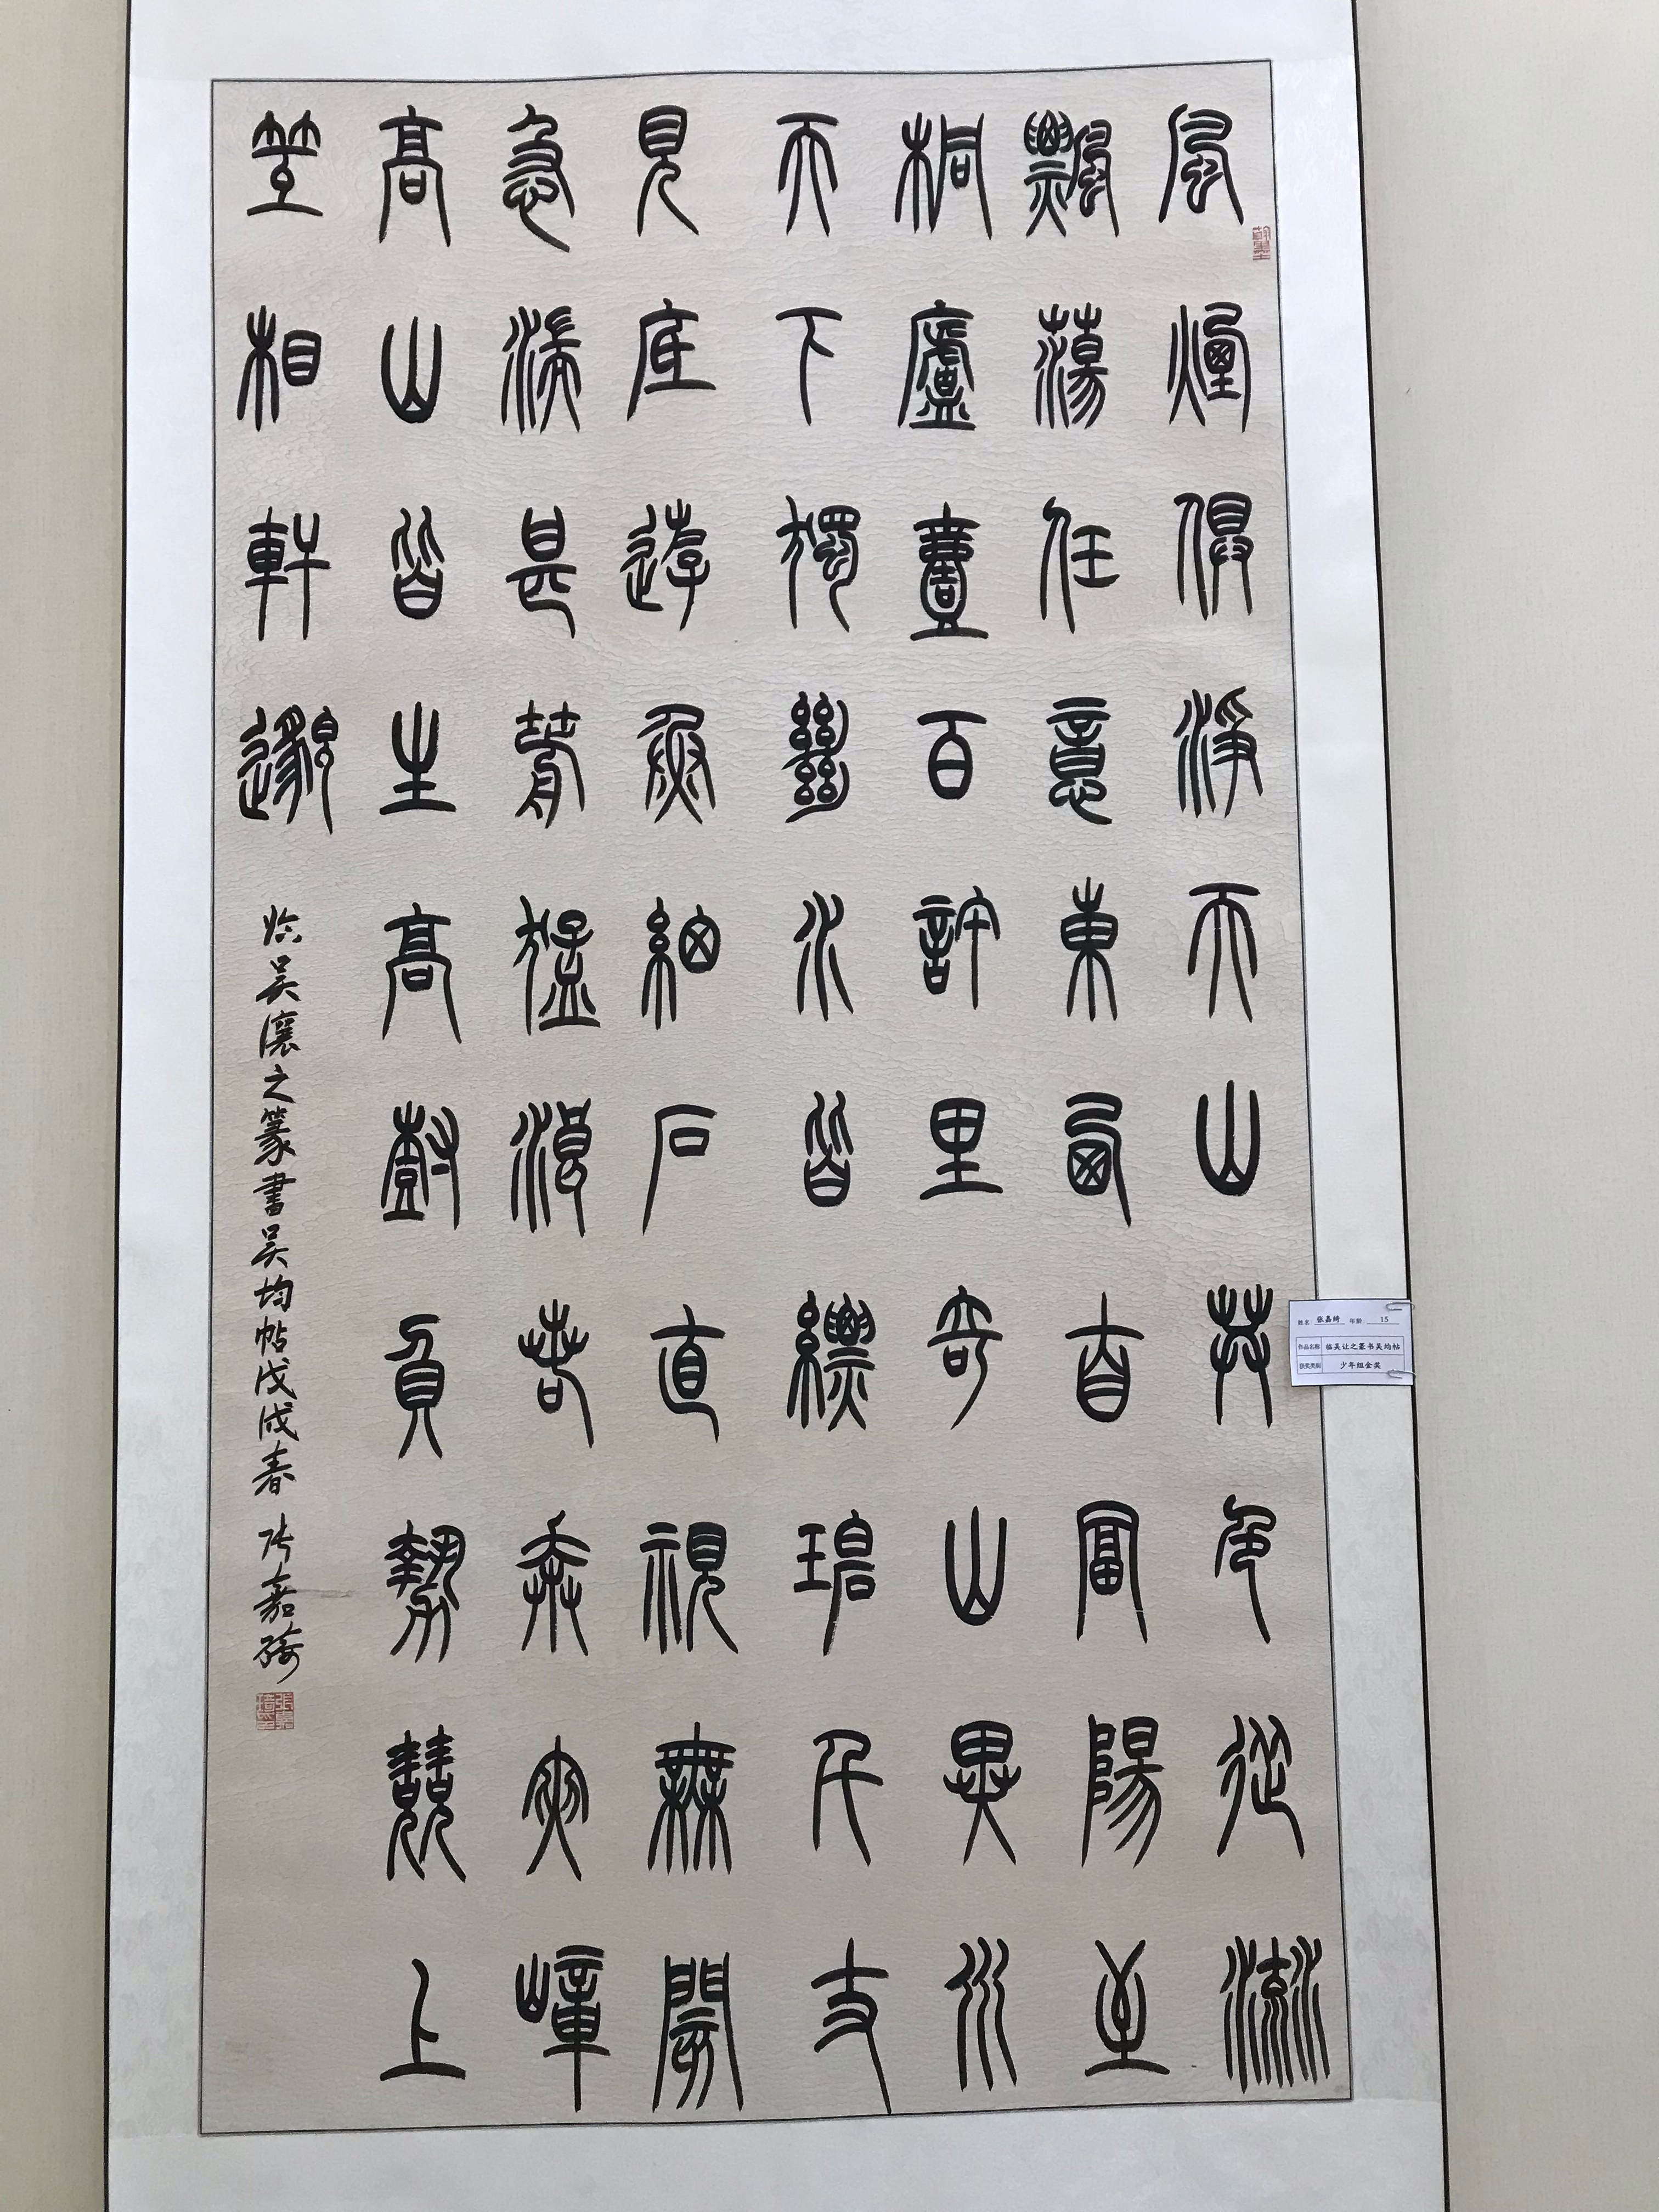 風煙俱淨天山共色從流
飄蕩任意東西自富陽至
桐廬壹百許里奇山異水
天下獨絕水皆縹碧千丈
見底遊魚細石直視無閡
急湍甚箭猛浪若奔夾嶂
高山皆生高樹負勢競上
互相軒邈
临吳讓之篆書吳均帖戊戌春 张嘉綺
姓名 张嘉绮 年龄 15
作品名称 临吴让之篆书吴均帖
获奖类别 少年组金奖